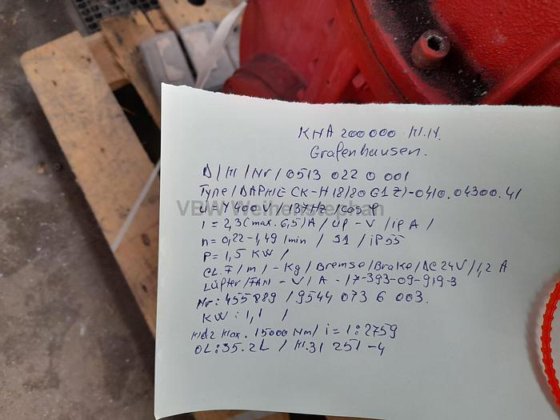 KHA 200000 M.H.
Grafenhausen.
D/M/Nr/0513 022 0 001
Type/DAPHIE CK-H18/20 G1Z)-0410.04300.41
U=Y400V/87Hz/cos φ
VBW Weihenstephan
I = 2,3(max. 6,5)A / UP - V / IP A /
n = 0,22-1,49 1min / S1 / IP55
P = 1,5 KW /
CL.F / m / - Kg / Bremse/Brake/DC24V/1,2 A
Lüfter/FAN - V/A - 17-393-09-919-3
Nr: 455889 / 9544 073 6 003.
KW: 1,1 /
Md2 max. 15000Nm / i = 1:2759
OL: 35.2L / M.31 251-4